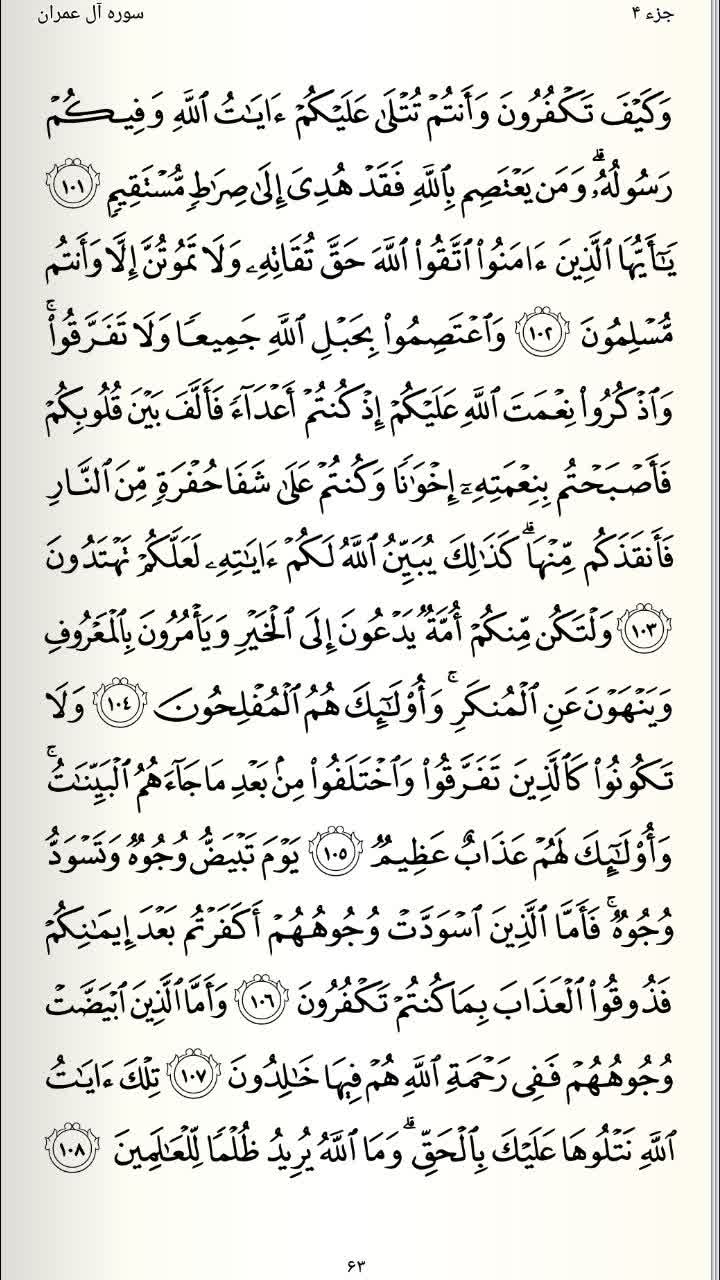 جزء ۴
سوره آل عمران
وَكَيۡفَ تَكۡفُرُونَ وَأَنتُمۡ تُتۡلَىٰ عَلَيۡكُمۡ ءَايَٰتُ ٱللَّهِ وَفِيكُمۡ
رَسُولُهُۥۗ وَمَن يَعۡتَصِم بِٱللَّهِ فَقَدۡ هُدِيَ إِلَىٰ صِرَٰطٖ مُّسۡتَقِيمٖ ١٠١
يَٰٓأَيُّهَا ٱلَّذِينَ ءَامَنُواْ ٱتَّقُواْ ٱللَّهَ حَقَّ تُقَاتِهِۦ وَلَا تَمُوتُنَّ إِلَّا وَأَنتُم
مُّسۡلِمُونَ ١٠٢ وَٱعۡتَصِمُواْ بِحَبۡلِ ٱللَّهِ جَمِيعٗا وَلَا تَفَرَّقُواْۚ
وَٱذۡكُرُواْ نِعۡمَتَ ٱللَّهِ عَلَيۡكُمۡ إِذۡ كُنتُمۡ أَعۡدَآءٗ فَأَلَّفَ بَيۡنَ قُلُوبِكُمۡ
فَأَصۡبَحۡتُم بِنِعۡمَتِهِۦٓ إِخۡوَٰنٗا وَكُنتُمۡ عَلَىٰ شَفَا حُفۡرَةٖ مِّنَ ٱلنَّارِ
فَأَنقَذَكُم مِّنۡهَاۗ كَذَٰلِكَ يُبَيِّنُ ٱللَّهُ لَكُمۡ ءَايَٰتِهِۦ لَعَلَّكُمۡ تَهۡتَدُونَ
١٠٣ وَلۡتَكُن مِّنكُمۡ أُمَّةٞ يَدۡعُونَ إِلَى ٱلۡخَيۡرِ وَيَأۡمُرُونَ بِٱلۡمَعۡرُوفِ
وَيَنۡهَوۡنَ عَنِ ٱلۡمُنكَرِۚ وَأُوْلَٰٓئِكَ هُمُ ٱلۡمُفۡلِحُونَ ١٠٤ وَلَا
تَكُونُواْ كَٱلَّذِينَ تَفَرَّقُواْ وَٱخۡتَلَفُواْ مِنۢ بَعۡدِ مَا جَآءَهُمُ ٱلۡبَيِّنَٰتُۚ
وَأُوْلَٰٓئِكَ لَهُمۡ عَذَابٌ عَظِيمٞ ١٠٥ يَوۡمَ تَبۡيَضُّ وُجُوهٞ وَتَسۡوَدُّ
وُجُوهٞۚ فَأَمَّا ٱلَّذِينَ ٱسۡوَدَّتۡ وُجُوهُهُمۡ أَكَفَرۡتُم بَعۡدَ إِيمَٰنِكُمۡ
فَذُوقُواْ ٱلۡعَذَابَ بِمَا كُنتُمۡ تَكۡفُرُونَ ١٠٦ وَأَمَّا ٱلَّذِينَ ٱبۡيَضَّتۡ
وُجُوهُهُمۡ فَفِي رَحۡمَةِ ٱللَّهِ هُمۡ فِيهَا خَٰلِدُونَ ١٠٧ تِلۡكَ ءَايَٰتُ
ٱللَّهِ نَتۡلُوهَا عَلَيۡكَ بِٱلۡحَقِّۗ وَمَا ٱللَّهُ يُرِيدُ ظُلۡمٗا لِّلۡعَٰلَمِينَ ١٠٨
۶۳